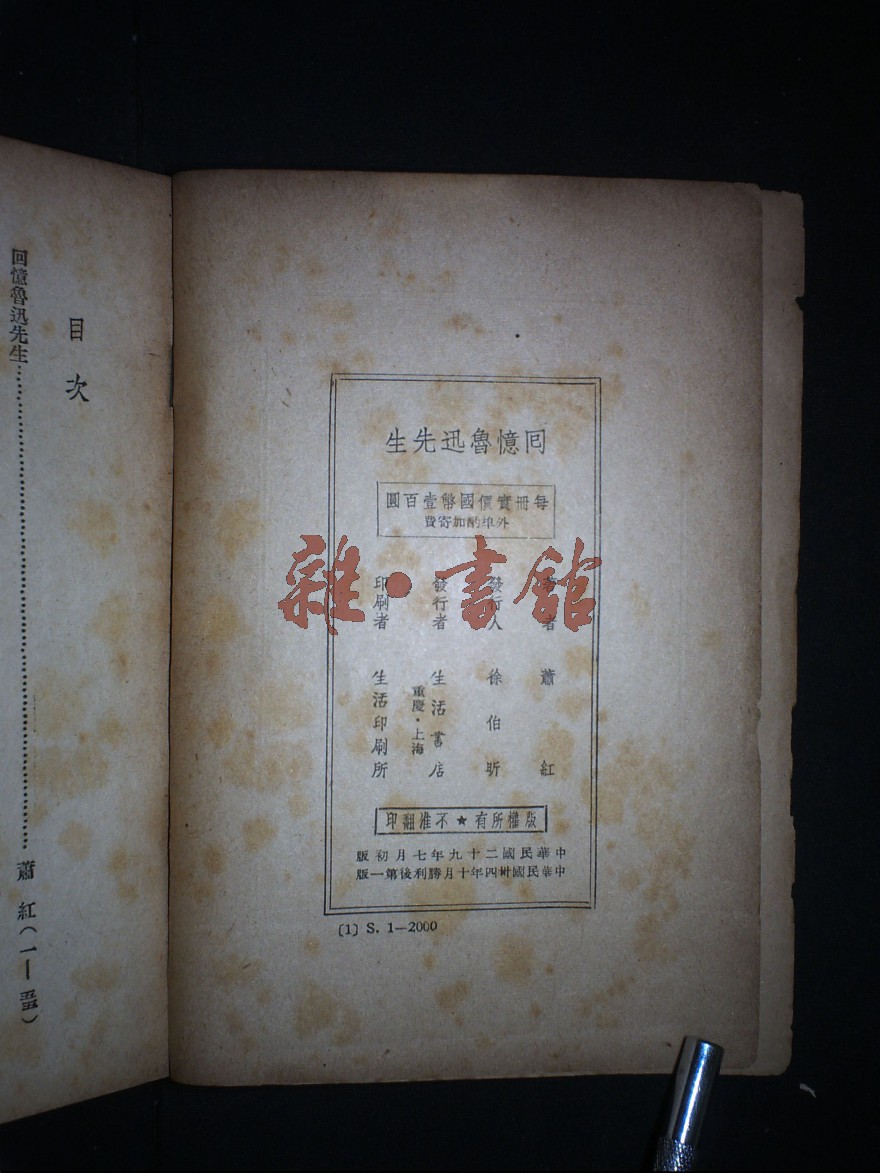 囘憶魯迅先生
每冊實價國幣壹百圓
外埠酌加寄費
著者 蕭紅
發行人 徐伯昕
發行者 生活書店
重慶・上海
印刷者 生活印刷所
版權所有★不准翻印
中華民國二十九年七月初版
中華民國卅四年十月勝利後第一版
〔1〕S. 1—2000
目次
回憶魯迅先生……蕭 紅(一—
雜·書館